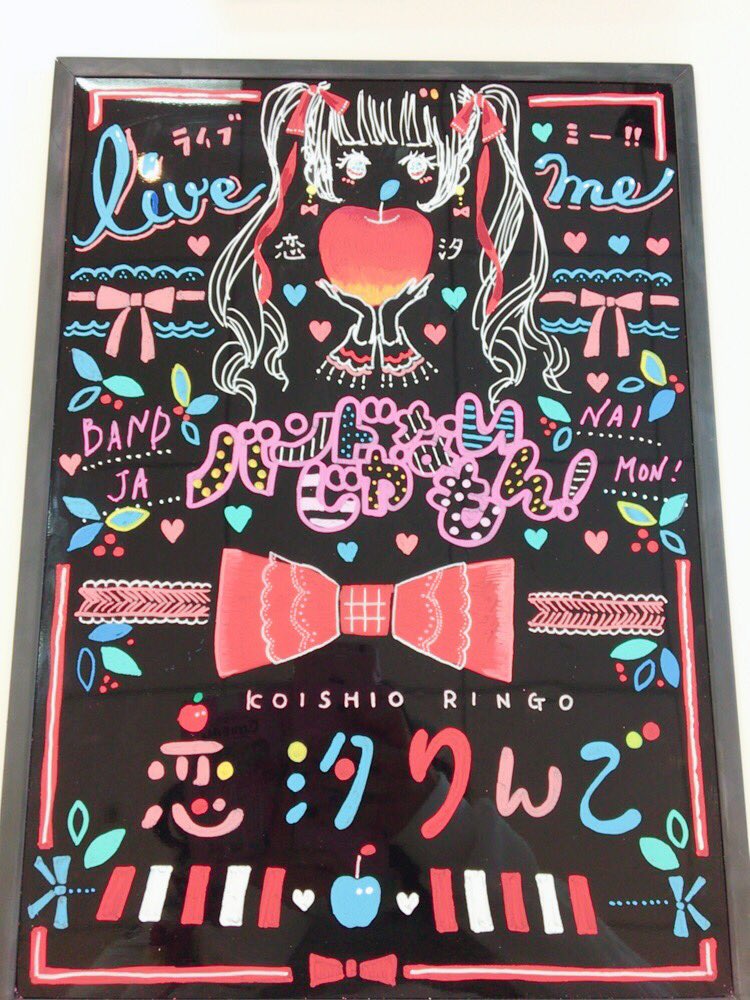 ライブ
ミー!!
live
me
恋 汐
BAND
NAI
バンドじゃないもん!
JA
MON!
KOISHIO RINGO
恋汐りんご